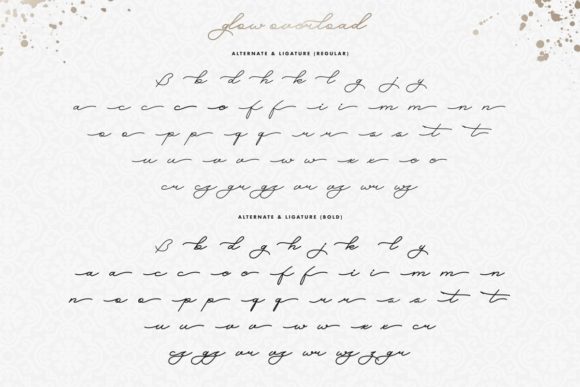 glow overload
ALTERNATE & LIGATURE (REGULAR)
ß b d h k l g j y
a c c c o f f i i m m n n
o o p p q q r r s s t t
u u v v w w x x o o
cr cz gr gz vr vz wr wz
ALTERNATE & LIGATURE (BOLD)
ß b d g h j k l y
a a c c o o f f i i m m n
n o o p p q q r r s s t t
u u v v w w x x cr
cz gz vr vz wr wz z gr